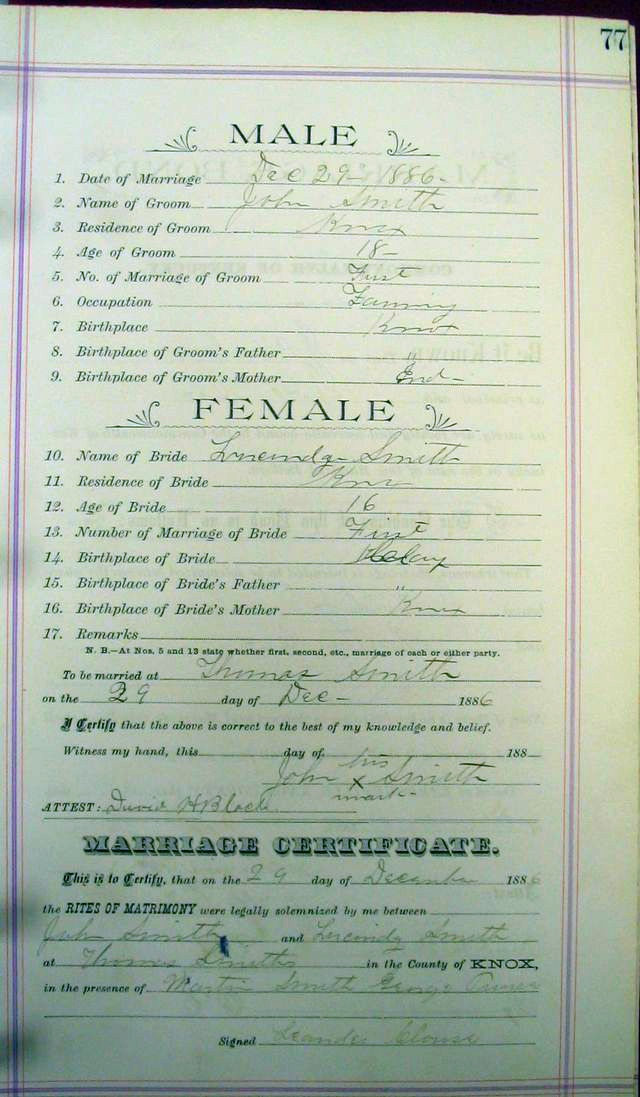 77
MALE
1. Date of Marriage Dec 29 - 1886 -
2. Name of Groom John Smith
3. Residence of Groom Knox
4. Age of Groom 18 -
5. No. of Marriage of Groom First
6. Occupation Farming
7. Birthplace Knox
8. Birthplace of Groom's Father "
9. Birthplace of Groom's Mother
FEMALE
10. Name of Bride Lucinda Smith
11. Residence of Bride Knox
12. Age of Bride 16
13. Number of Marriage of Bride First
14. Birthplace of Bride Clay
15. Birthplace of Bride's Father "
16. Birthplace of Bride's Mother Knox
17. Remarks
N. B.—At Nos. 5 and 13 state whether first, second, etc., marriage of each or either party.
To be married at Thomas Smith
on the 29 day of Dec - 1886
I Certify that the above is correct to the best of my knowledge and belief.
Witness my hand, this day of 188
his
John x Smith
mark
ATTEST: David H Black
MARRIAGE CERTIFICATE.
This is to Certify, that on the 29 day of December 1886
the RITES OF MATRIMONY were legally solemnized by me between
John Smith and Lucindy Smith
at Thomas Smiths in the County of KNOX,
in the presence of Martin Smith George
Signed Leander